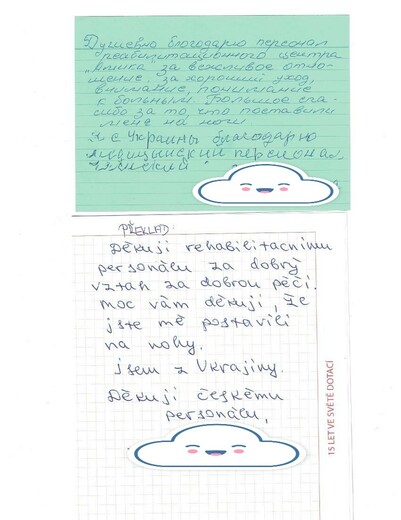 Душевно благодарю персонал
реабилитационного центра
за вежливое отно-
шение, за хороший уход,
внимание, понимание
к больным. Большое спа-
сибо за то, что поставили
меня на ноги
Я с Украины благодарю
персонал,
PŘEKLAD:
Děkuji rehabilitacnímu
personálu za dobrý
vztah za dobrou péči.
moc vám děkuji, že
jste mě postavili
na nohy.
jsem z Ukrajiny.
Děkuji českému
personálu,
15 LET VE SVĚTĚ DOTACÍ